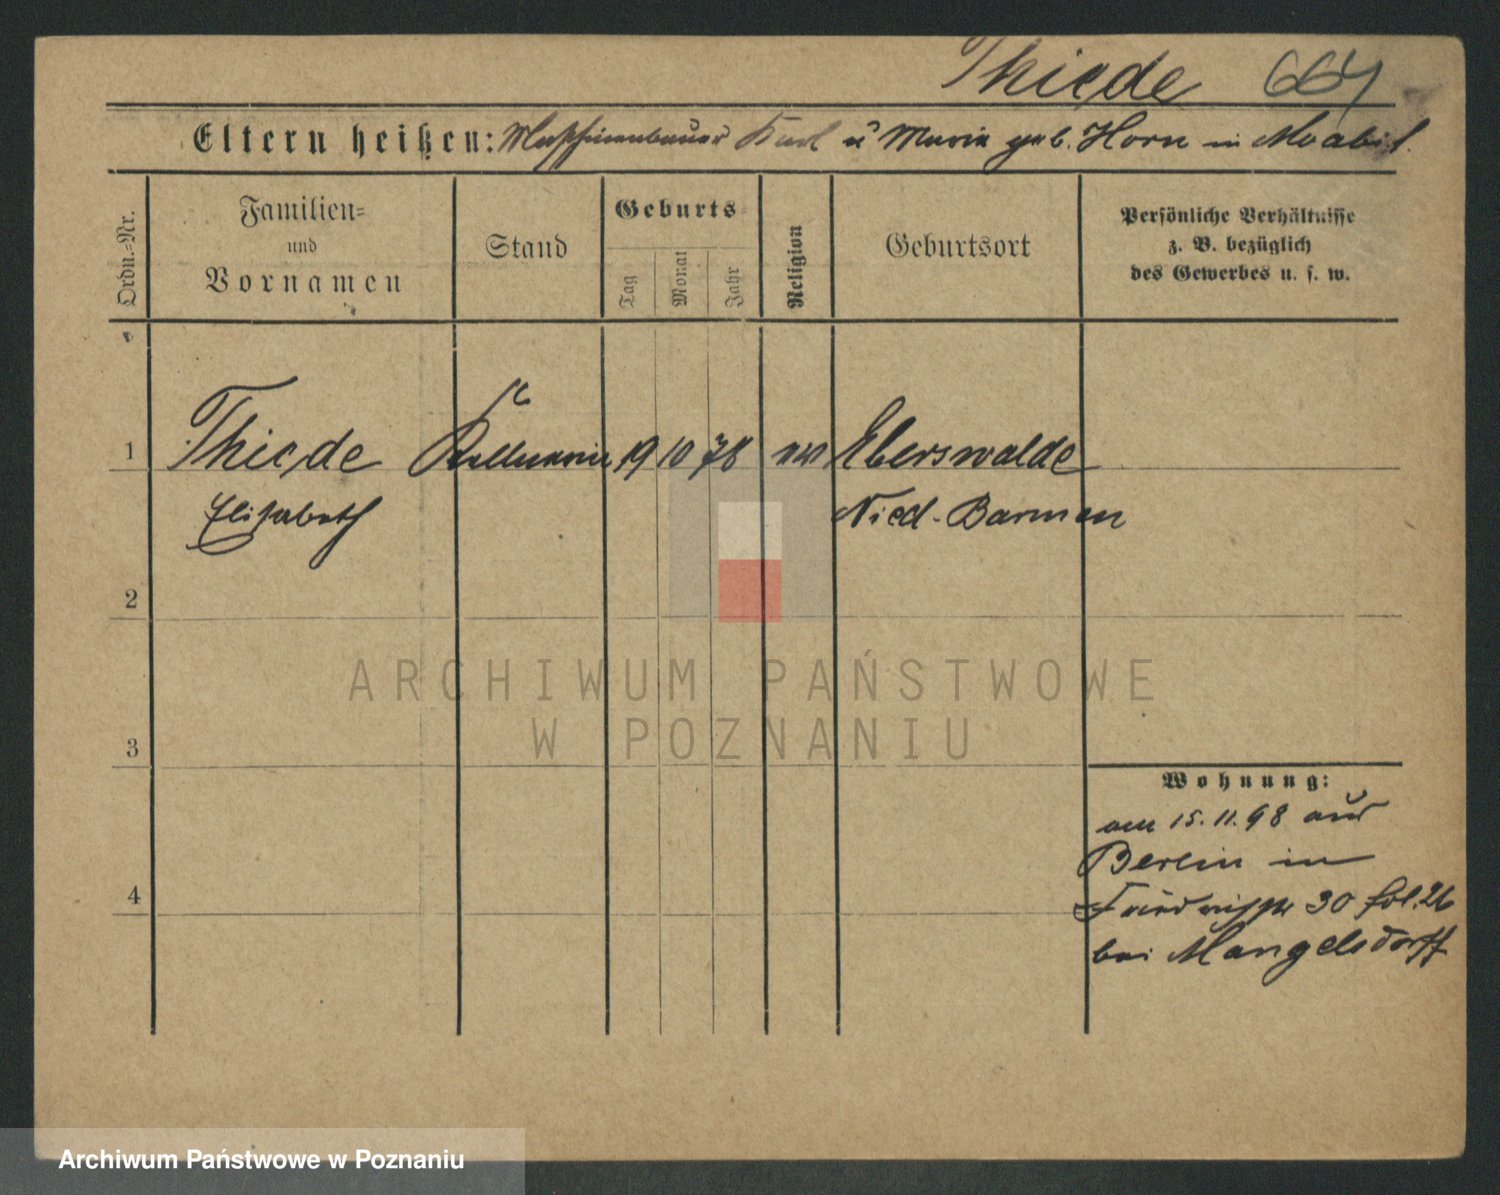 Thiede 664
Eltern heißen: Maschinenbauer Karl u Marie geb. Horn in Moabit.
Ordn.-Nr.
Familien-
und
Vornamen
Stand
Geburts-
Tag
Monat
Jahr
Religion
Geburtsort
Persönliche Verhältnisse
z. B. bezüglich
des Gewerbes u. s. w.
1 Thiede Kellnerin 19 10 78 ev Eberswalde
Elisabeth Nied-Barmen
2
3
4
Wohnung:
am 15.11.98 aus
Berlin in
30 fol. 26
bei Mangelsdorff
ARCHIWUM PAŃSTWOWE
W POZNANIU
Archiwum Państwowe w Poznaniu